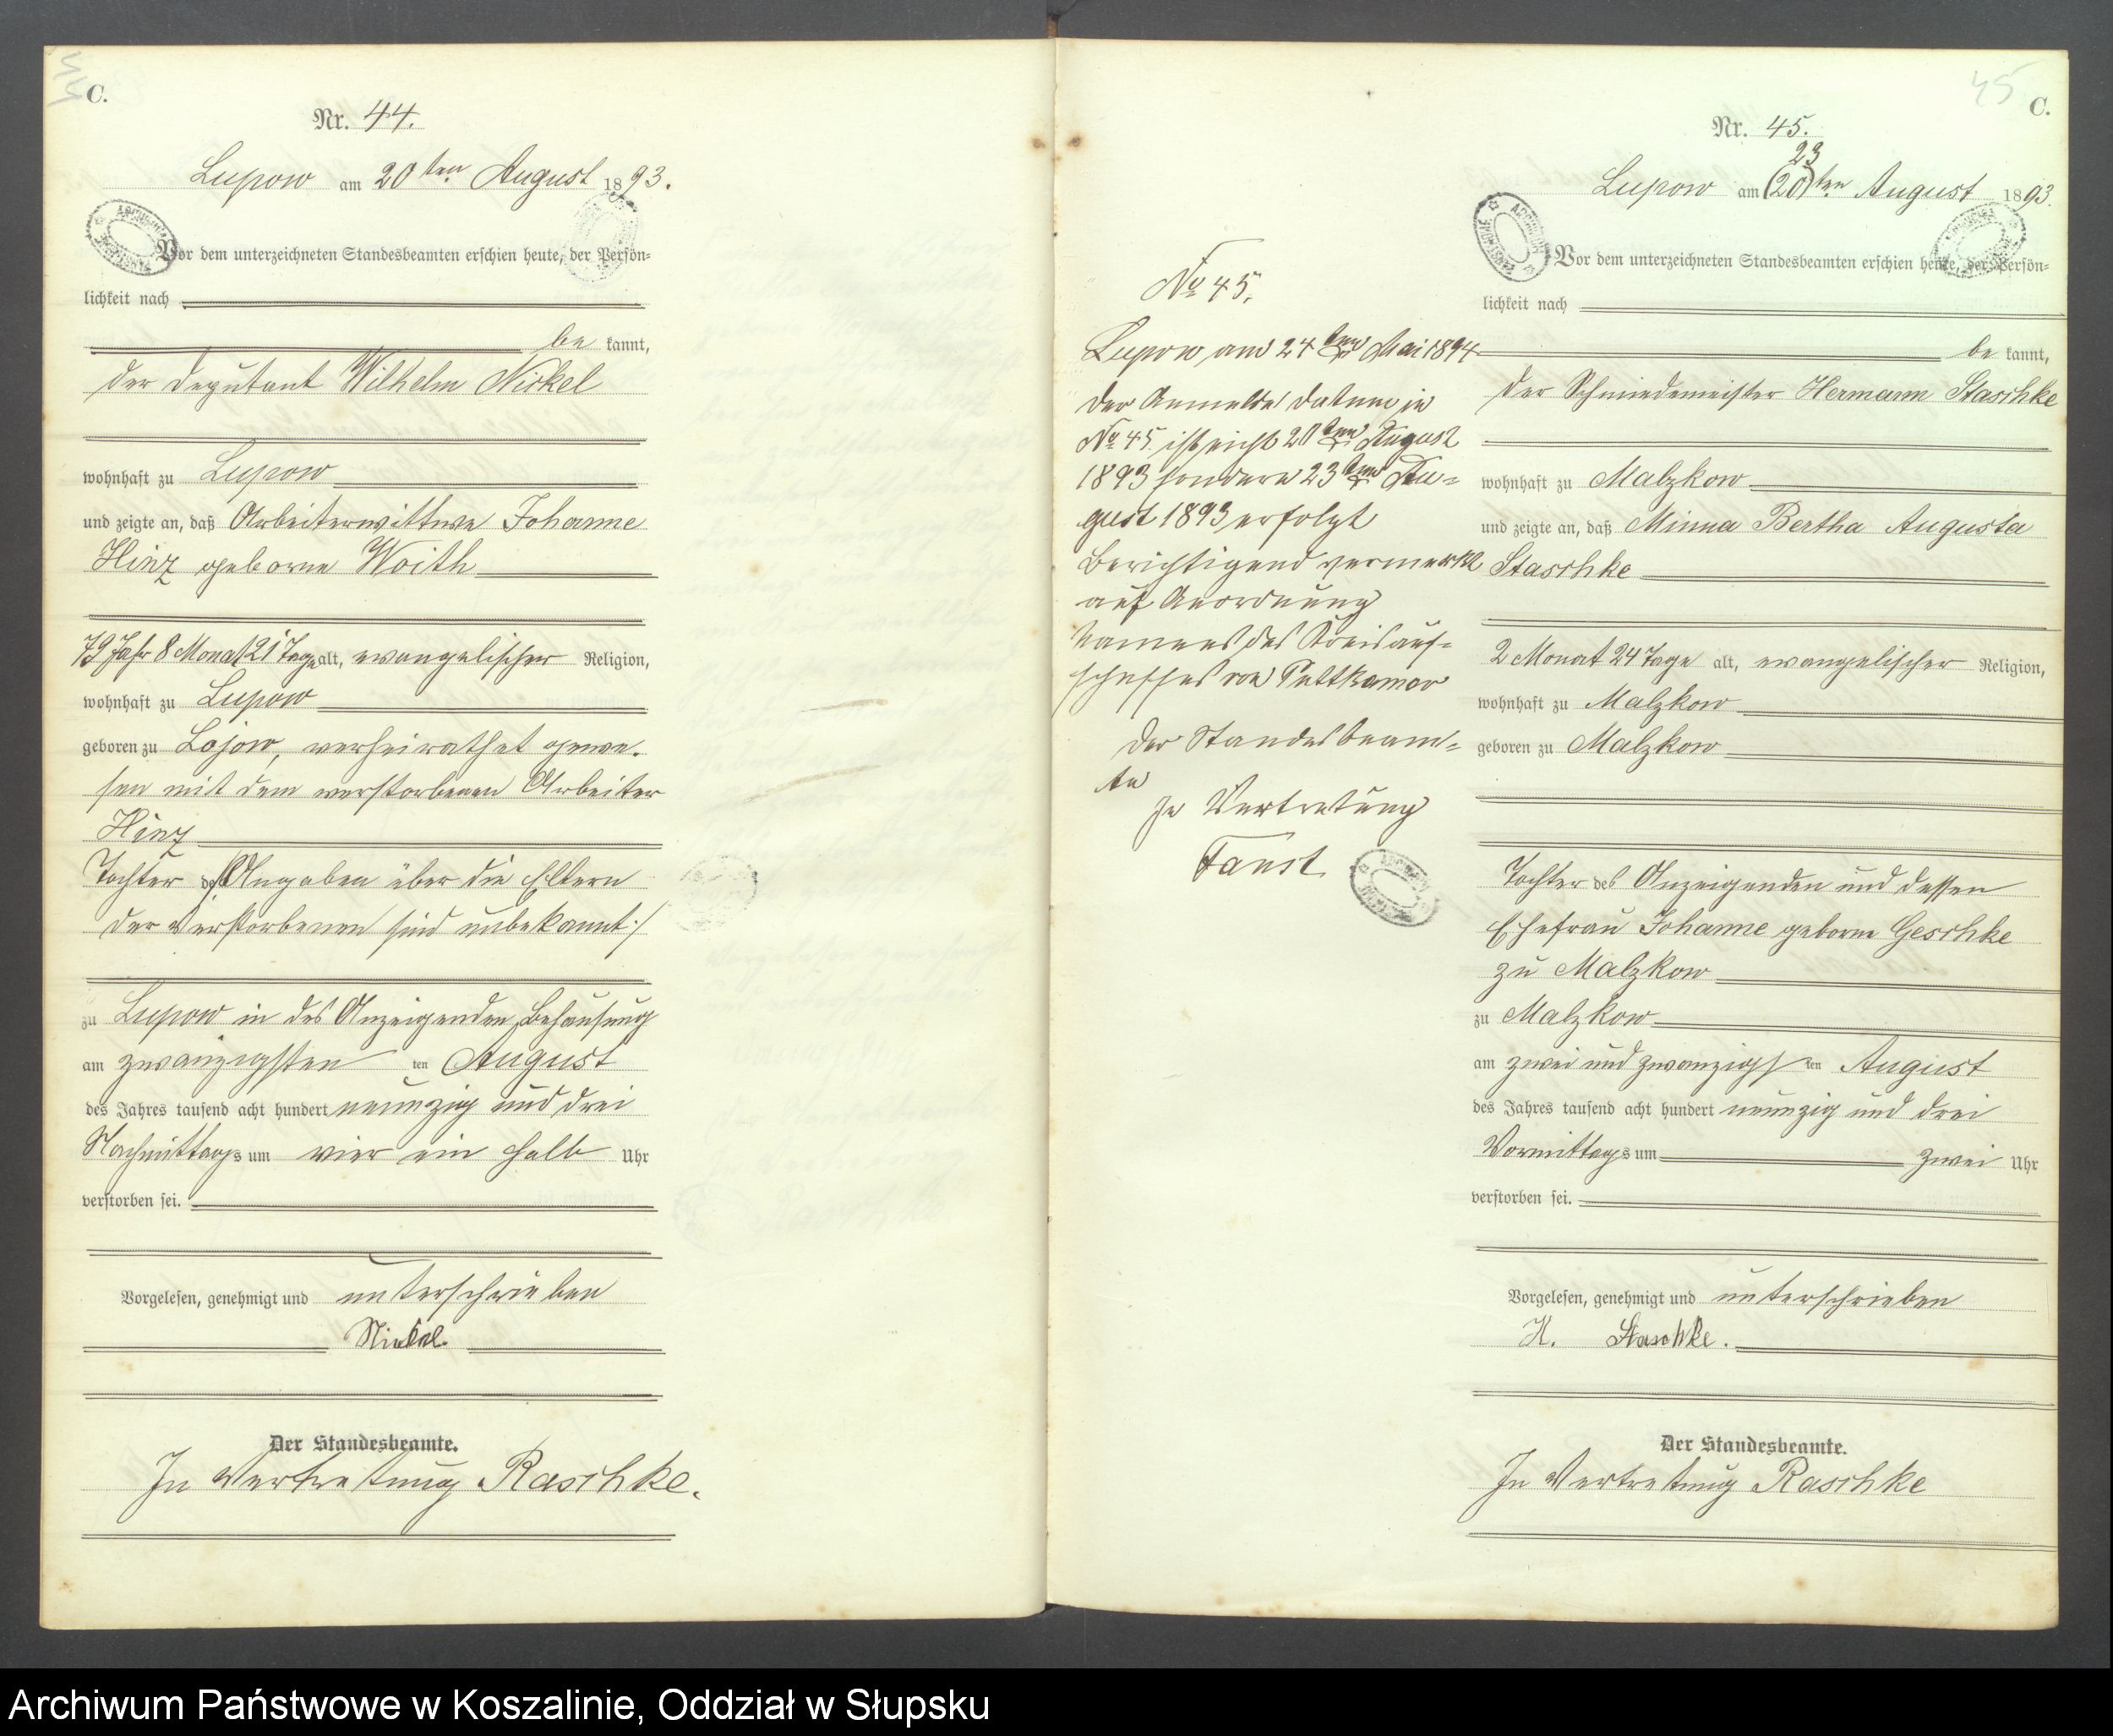 C.
Nr. 44.
Lupow am 20ten August 1893.
Vor dem unterzeichneten Standesbeamten erschien heute, der Persön=
lichkeit nach
be kannt,
der Deputant Wilhelm Nickel
wohnhaft zu Lupow
und zeigte an, daß Arbeiterwittwe Johanne
Hinz geborne Woith
79 Jahr 8 Monat 21 Tage alt, evangelischer Religion,
wohnhaft zu Lupow
geboren zu Lojow, verheirathet gewe-
sen mit dem verstorbenen Arbeiter
Hinz
Tochter des /: Angaben über die Eltern
der Verstorbenen sind unbekannt :/
zu Lupow in des Anzeigenden Behausung
am zwanzigsten ten August
des Jahres tausend acht hundert neunzig und drei
Nachmittags um vier ein halb Uhr
verstorben sei.
Vorgelesen, genehmigt und unterschrieben
Nickel.
Der Standesbeamte.
In Vertretung Raschke.
No 45.
Lupow am 24ten Mai 1894
Der Anmelde Datum in
No 45 ist nicht 20ten August
1893 sondern 23ten Au=
gust 1893 erfolgt
Berichtigend vermerkt
auf Anordnung
Namens des Kreisaus=
schusses von Puttkamer
Der Standesbeam=
te
In Vertretung
Faust
45
C.
Nr. 45.
23
Lupow am (20)ten August 1893.
Vor dem unterzeichneten Standesbeamten erschien heute, der Persön=
lichkeit nach
be kannt,
der Schmiedemeister Hermann Staschke
wohnhaft zu Malzkow
und zeigte an, daß Minna Bertha Augusta
Staschke
2 Monat 24 Tage alt, evangelischer Religion,
wohnhaft zu Malzkow
geboren zu Malzkow
Tochter des Anzeigenden und dessen
Ehefrau Johanne geborne Geschke
zu Malzkow
zu Malzkow
am zwei und zwanzigs ten August
des Jahres tausend acht hundert neunzig und drei
Vormittags um zwei Uhr
verstorben sei.
Vorgelesen, genehmigt und unterschrieben
H. Staschke.
Der Standesbeamte.
In Vertretung Raschke
Archiwum Państwowe w Koszalinie, Oddział w Słupsku